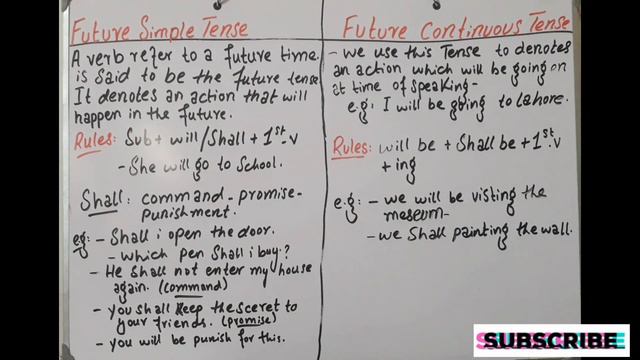 Future Simple Tense
A verb refer to a future time.
is said to be the future tense
It denotes an action that will
happen in the future.
Rules: Sub + will/Shall + 1st.v
- She will go to School.
Shall: command - promise -
punishment.
eg: - Shall i open the door.
- which pen Shall i buy?
- He shall not enter my house
again. (command)
- you shall keep the sceret to
your friends. (promise)
- you will be punish for this.
Future Continuous Tense
- we use this Tense to denotes
an action which will be going on
at time of speaking -
e.g: I will be going to lahore.
Rules: will be + Shall be + 1st.v
+ ing
e.g: - we will be visting the
meseum -
- we Shall painting the wall.
SUBSCRIBE